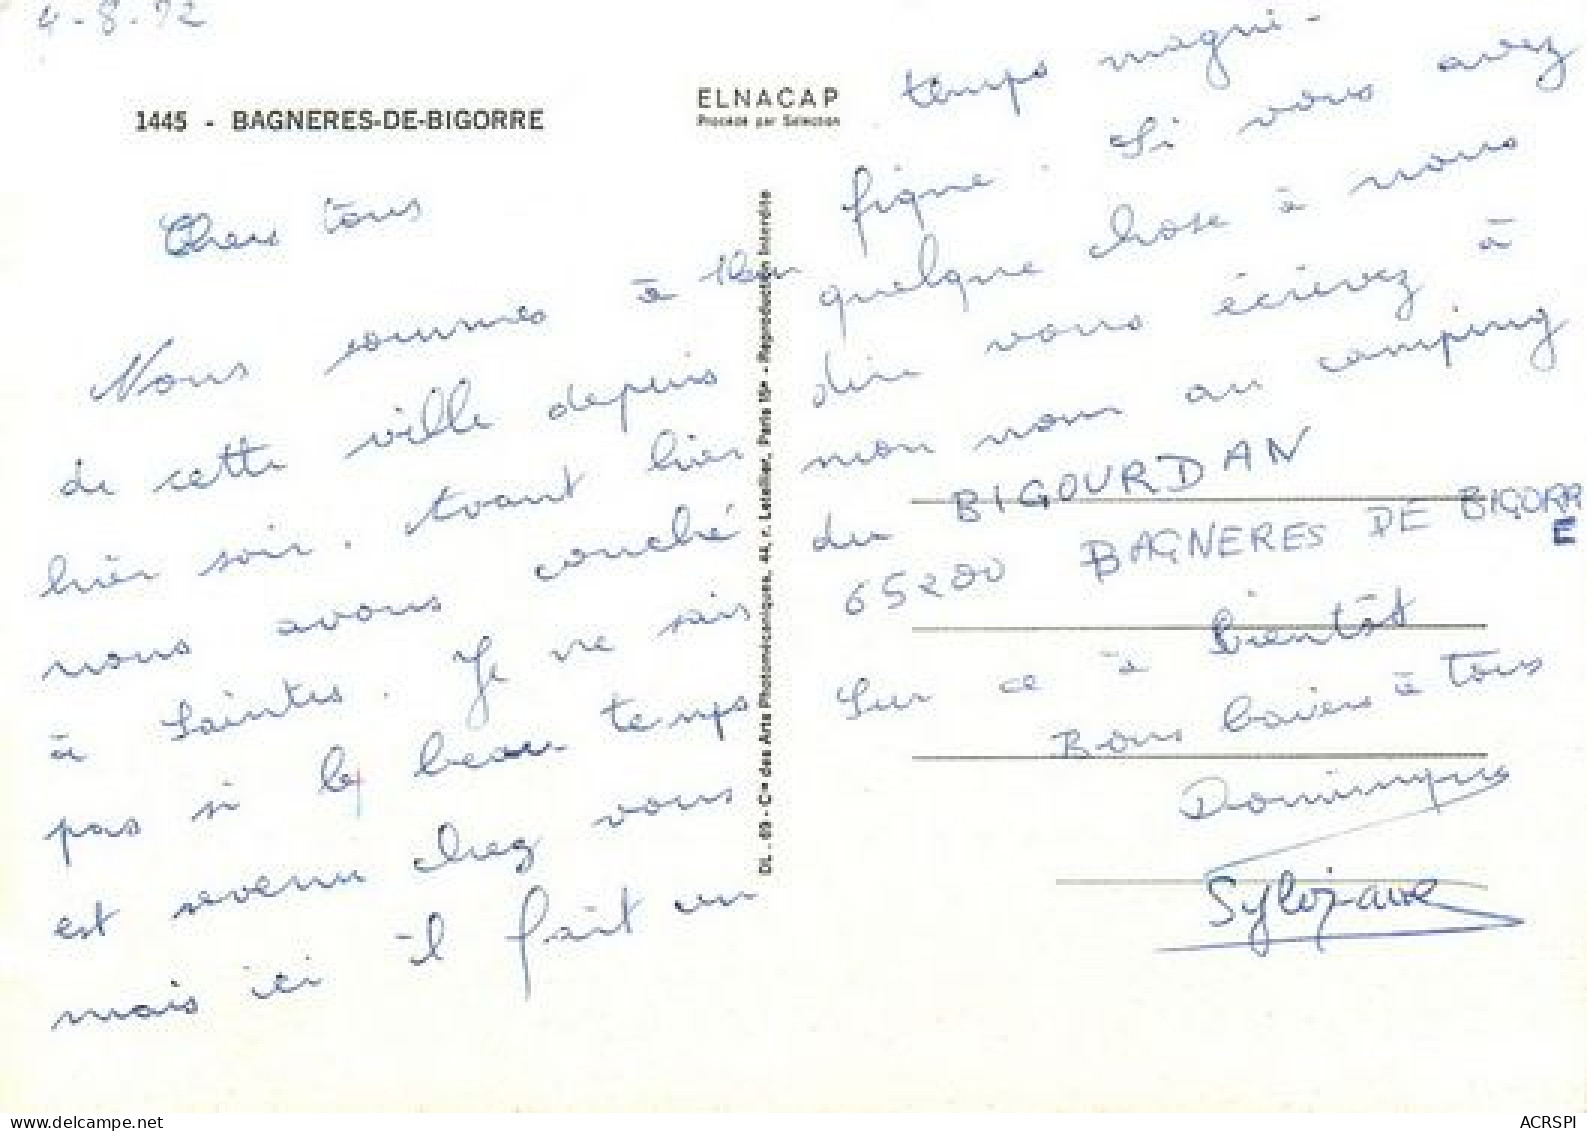 4-8-72
1445 - BAGNERES-DE-BIGORRE
ELNACAP
Procédé par Sélection
Chers tous
Nous sommes à 1km
de cette ville depuis
hier soir. Avant hier
nous avons couché
à Saintes. Je ne sais
pas si le beau temps
est revenu chez vous
mais ici il fait un
DL - 69 - Cie des Arts Photomécaniques, 44, r. Letellier, Paris 15e - Reproduction Interdite
temps magni-
fique. Si vous avez
quelque chose à nous
dire vous écrivez à
mon nom au camping
du BIGOURDAN
65200 BAGNERES DE BIGORR
E
Sur ce à bientôt
Bons baisers à tous
Dominique
Sylviane
www.delcampe.net
ACRSPI